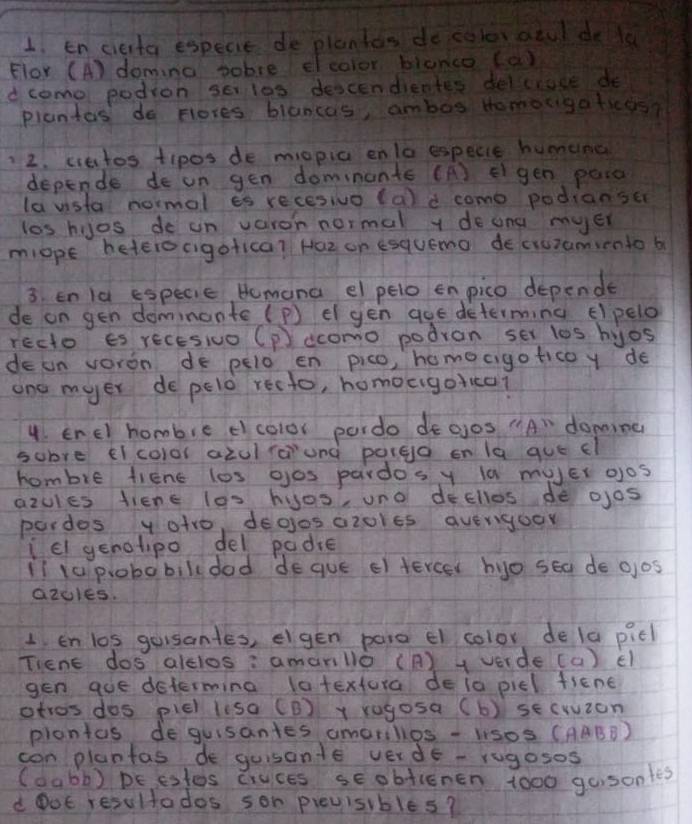 1. en cierta especie de plantas de color azul de la
Flor (A) domina sobre el color blanco (a)
¿como podron ser los descendientes del cruce de
plantas de Flores blancas, ambas Homocigaticas?
2. ciertos tipos de miopia en la especie humana
depende de un gen dominante (A) el gen para
la vista normal es recesivo (a) ¿ como podian ser
los hijos de un varon normal y de una mujer
miope heterocigotica? Haz un esquema de cruzamiento b
3. en la especie Humana el pelo en pico depende
de un gen dominante (P) el gen que determina el pelo
recto es recesivo (p) ¿como podran ser los hijos
de un voron de pelo en pico, homocigotico y de
una mujer de pelo recto, homocigotica?
4. en el hombre el color pardo de ojos "A" domina
sobre el color azul "a" una pareja en la que el
hombre tiene los ojos pardos y la mujer ojos
azules tiene los hijos, uno de ellos de ojos
pardos y otro de ojos azules averiguar
i el genotipo del padre
ii la probabilidad de que el tercer hijo sea de ojos
azules.
1. en los guisantes, el gen para el color de la piel
Tiene dos alelos: amarillo (A) y verde (a) el
gen que determina la textura de la piel tiene
otros dos piel lisa (B) y rugosa (b) se cruzan
plantas de guisantes amarillos - lisos (AABB)
con plantas de guisante verde - rugosos
(aabb) De estos cruces se obtienen 1000 guisantes
¿ Que resultados son previsibles?